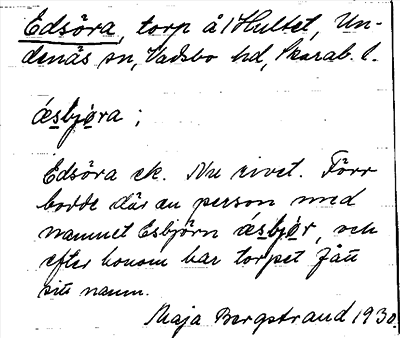 Edsöra, torp å Hultet, Un-
denäs sn, Vadsbo hd, Skarab. l.
ǽsbjøra ;
Edsöra ek. Nu rivet. Förr
bodde där en person med
namnet Esbjörn ǽsbjør, och
efter honom har torpet fått
sitt namn.
Maja Bergstrand 1930.